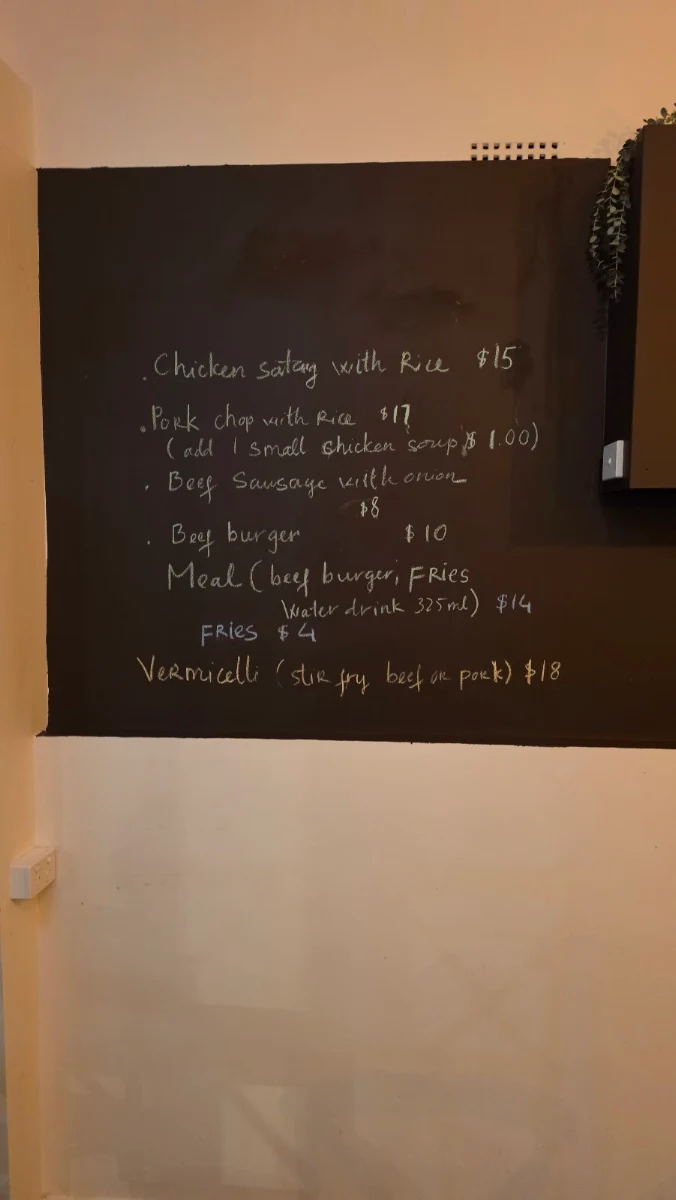 . Chicken satay with Rice $15
. Pork chop with Rice $17
( add 1 small chicken soup $ 1.00)
. Beef Sausage with onion
$8
. Beef burger $10
Meal (beef burger, FRies
Water drink 325ml) $14
FRies $4
Vermicelli (stir fry beef or pork) $18